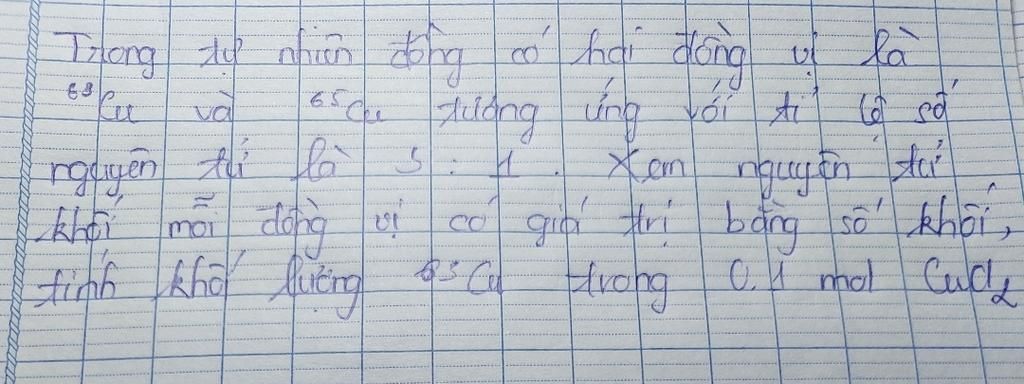 Trong tự nhiên đồng có hai đồng vị là
⁶³Cu và ⁶⁵Cu tương ứng với tỉ lệ số
nguyên tử là 5 : 1 . Xem nguyên tử
khối mỗi đồng vị có giá trị bằng số khối,
tính khối lượng ⁶³Cu trong 0.1 mol CuCl₂